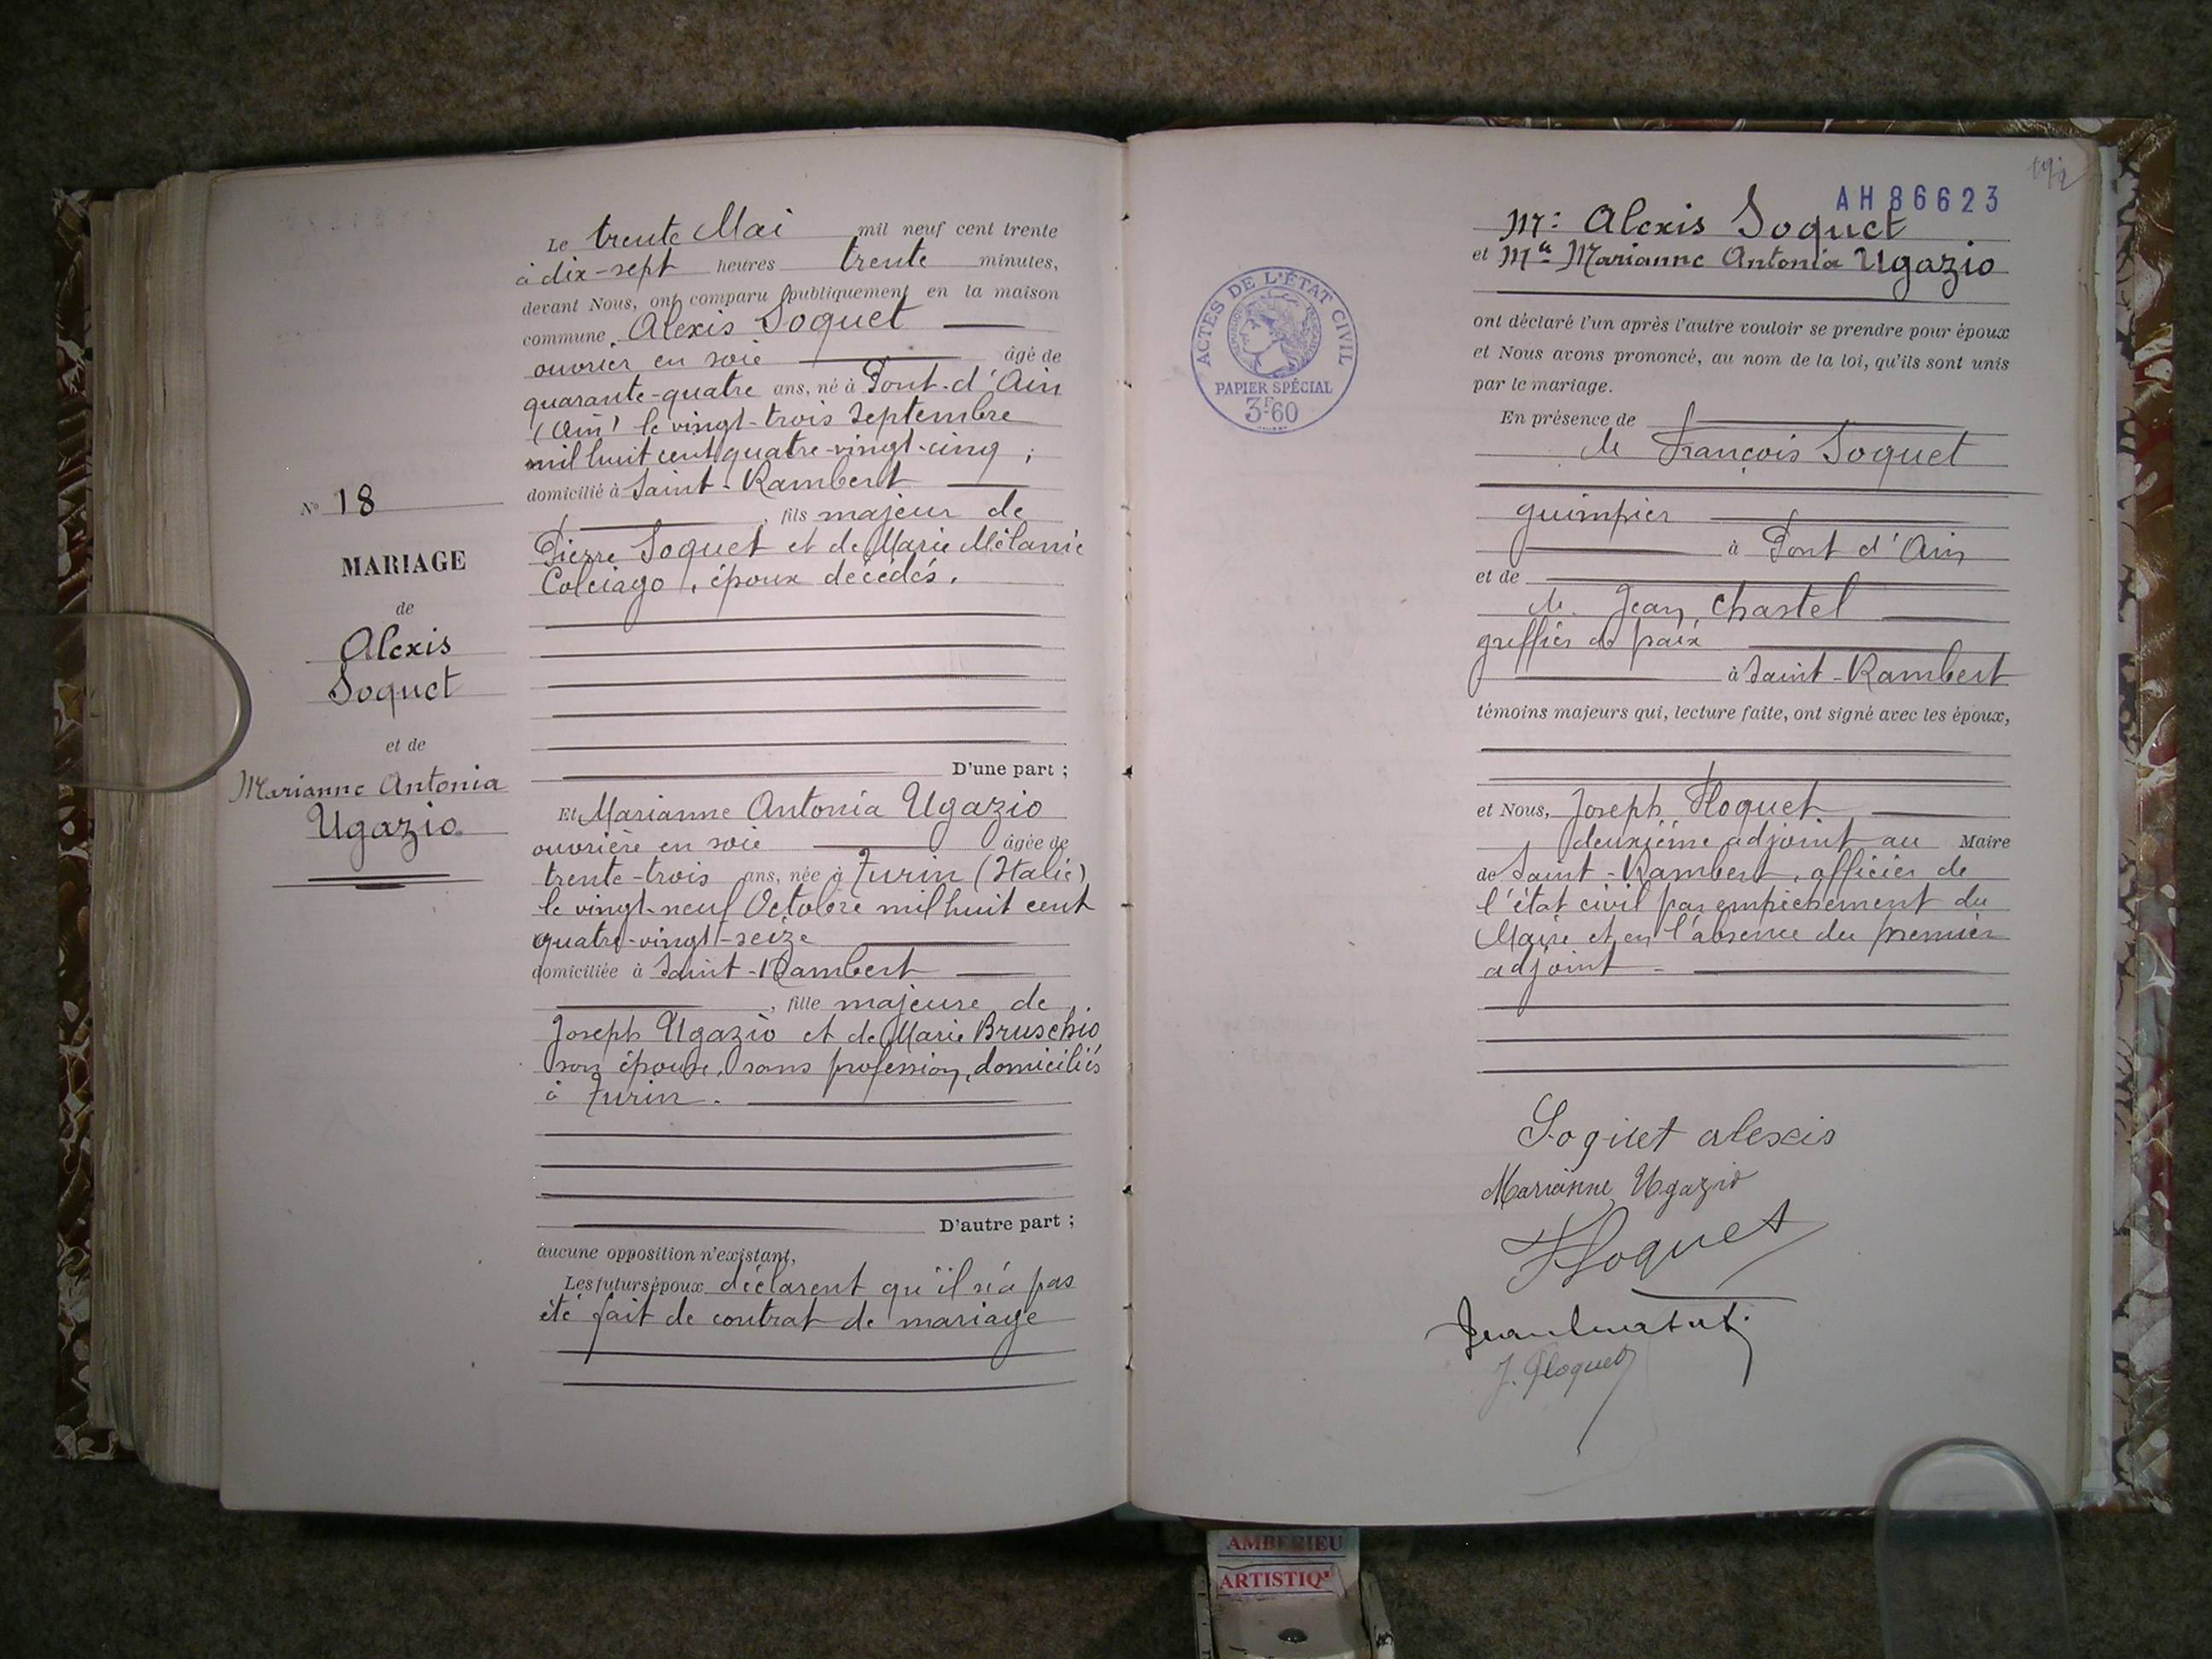 Le trente Mai mil neuf cent trente
à dix-sept heures trente minutes,
devant Nous, ont comparu publiquement en la maison
commune, Alexis Soquet
ouvrier en soie âgé de
quarante-quatre ans, né à Pont-d'Ain
(Ain) le vingt-trois Septembre
mil huit cent quatre-vingt-cinq ;
domicilié à Saint-Rambert
, fils majeur de
Pierre Soquet et de Marie Mélanie
Colciago, époux décédés.
D'une part ;
N° 18
MARIAGE
de
Alexis
Soquet
et de
Marianne Antonia
Ugazio
Et Marianne Antonia Ugazio
ouvrière en soie âgée de
trente-trois ans, née à Turin (Italie)
le vingt-neuf Octobre mil huit cent
quatre-vingt-seize
domiciliée à Saint-Rambert
, fille majeure de
Joseph Ugazio et de Marie Bruschio
son épouse, sans profession, domiciliés
à Turin.
D'autre part ;
aucune opposition n'existant,
Les futurs époux déclarent qu'il n'a pas
été fait de contrat de mariage
192
AH86623
Mr: Alexis Soquet
et Mlle Marianne Antonia Ugazio
ont déclaré l'un après l'autre vouloir se prendre pour époux
et Nous avons prononcé, au nom de la loi, qu'ils sont unis
par le mariage.
En présence de
M François Soquet
guimpier
à Pont d'Ain
et de
M. Jean Chastel
greffier de paix
à Saint-Rambert
témoins majeurs qui, lecture faite, ont signé avec les époux,
et Nous, Joseph Floquet
deuxième adjoint au Maire
de Saint-Rambert, officier de
l'état civil par empêchement du
Maire et en l'absence du premier
adjoint.
ACTES DE L'ÉTAT CIVIL
PAPIER SPÉCIAL
3F60
Soquet alexis
Marianne Ugazio
J. Floquet
AMBERIEU
ARTISTIQ